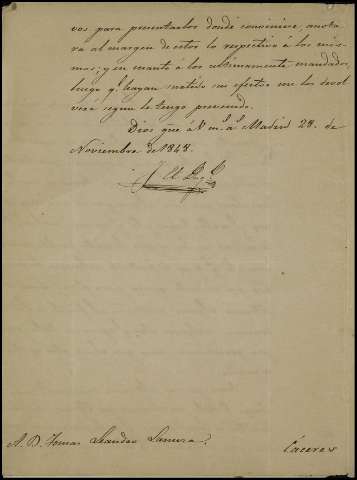 vos para presentarlos donde conviniere, anota
ra al margen de estos lo respectivo á los mis
mos; y en cuanto á los ultimamente mandados
luego q.e hayan metido su efecto me los devol
verá segun le tengo prevenido.
Dios gue á V. m.s a.s Madrid 28. de
Noviembre de 1848.
A. D. Tomas Leandro
Cáceres